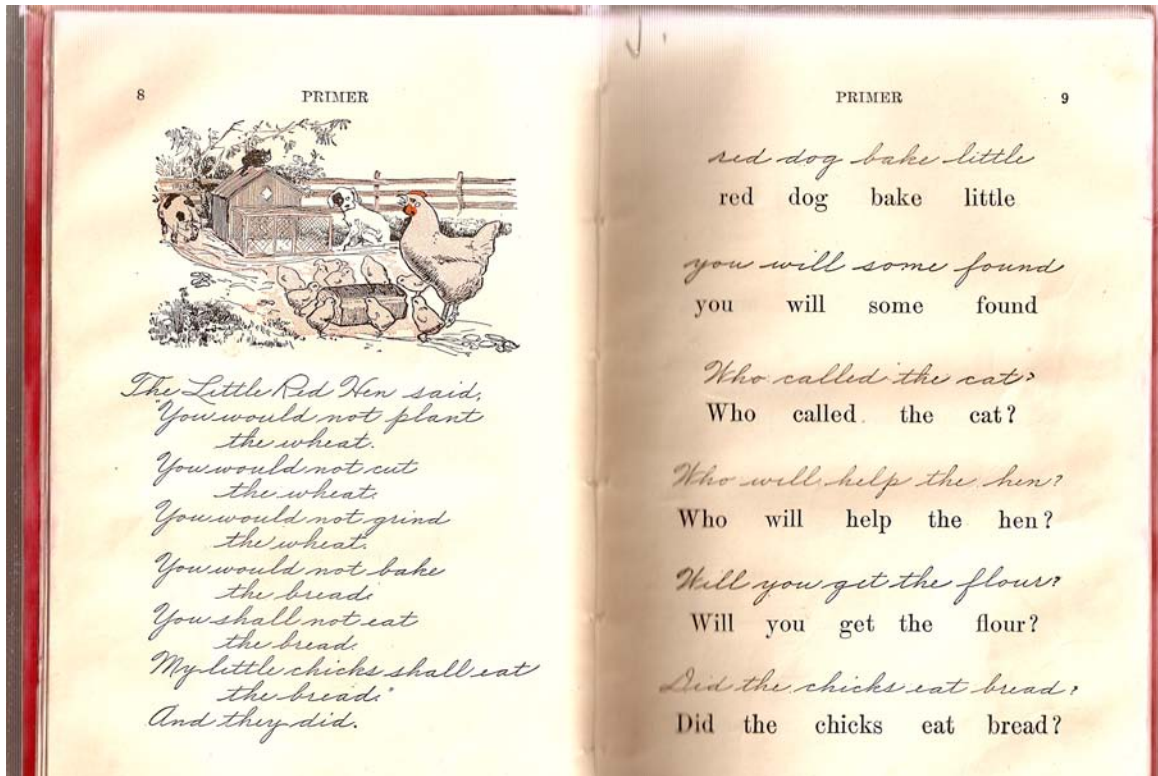 8
PRIMER
The Little Red Hen said,
"You would not plant
the wheat.
You would not cut
the wheat.
You would not grind
the wheat.
You would not bake
the bread.
You shall not eat
the bread.
My little chicks shall eat
the bread."
And they did.
PRIMER
9
red dog bake little
red dog bake little
you will some found
you will some found
Who called the cat?
Who called the cat?
Who will help the hen?
Who will help the hen?
Will you get the flour?
Will you get the flour?
Did the chicks eat bread?
Did the chicks eat bread?